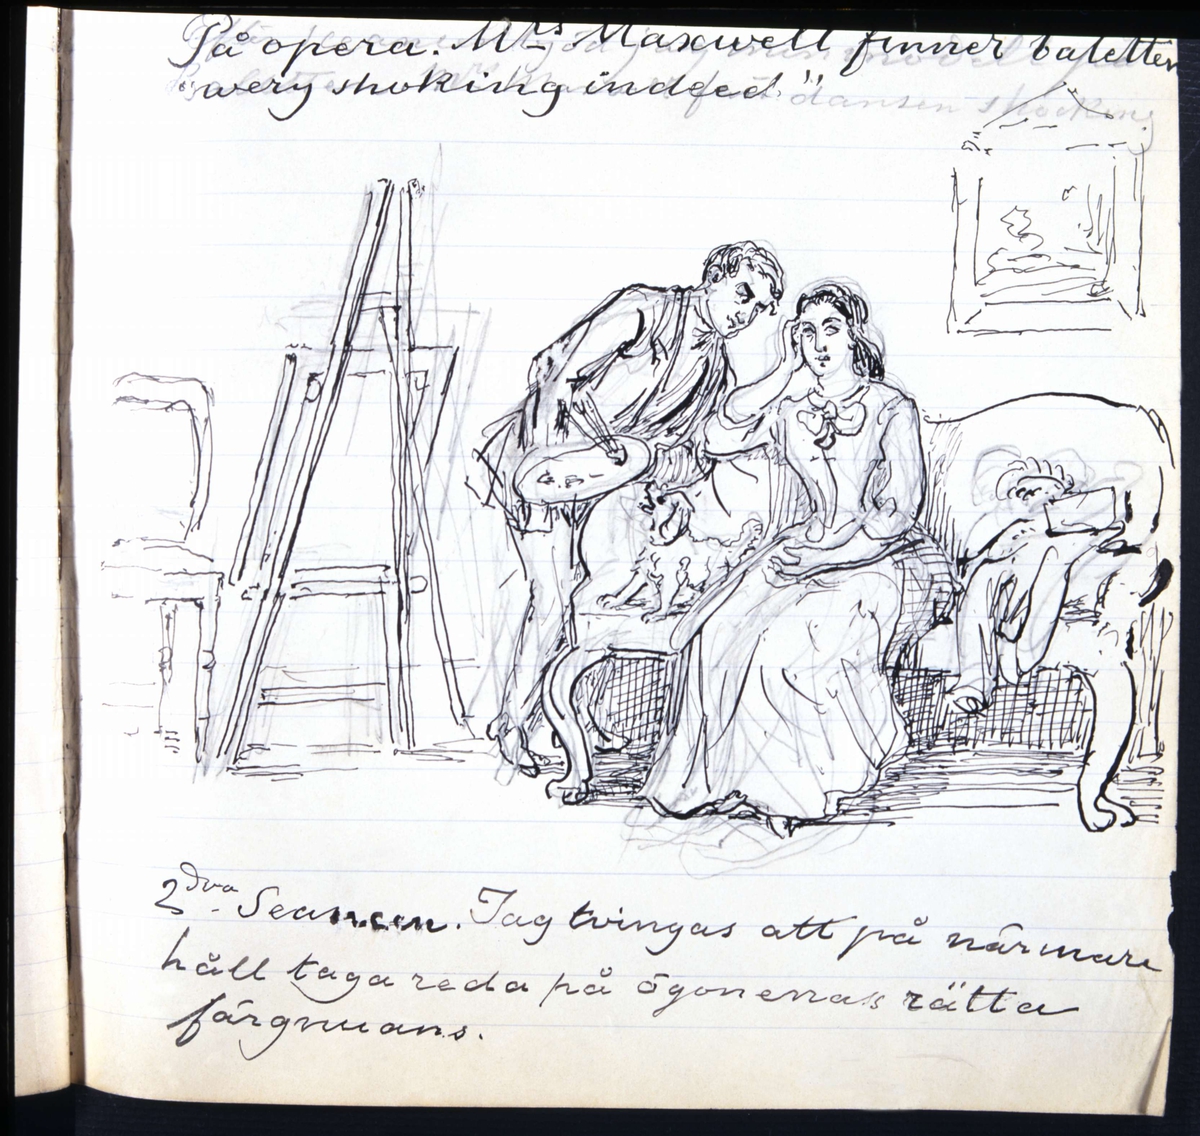 På opera. Mrs Maxwell finner baletten
"wery shoking indeed"
dansen shocking
2dra Seancen. Jag tvingas att på närmare
håll taga reda på ögonenas rätta
färgnuans.